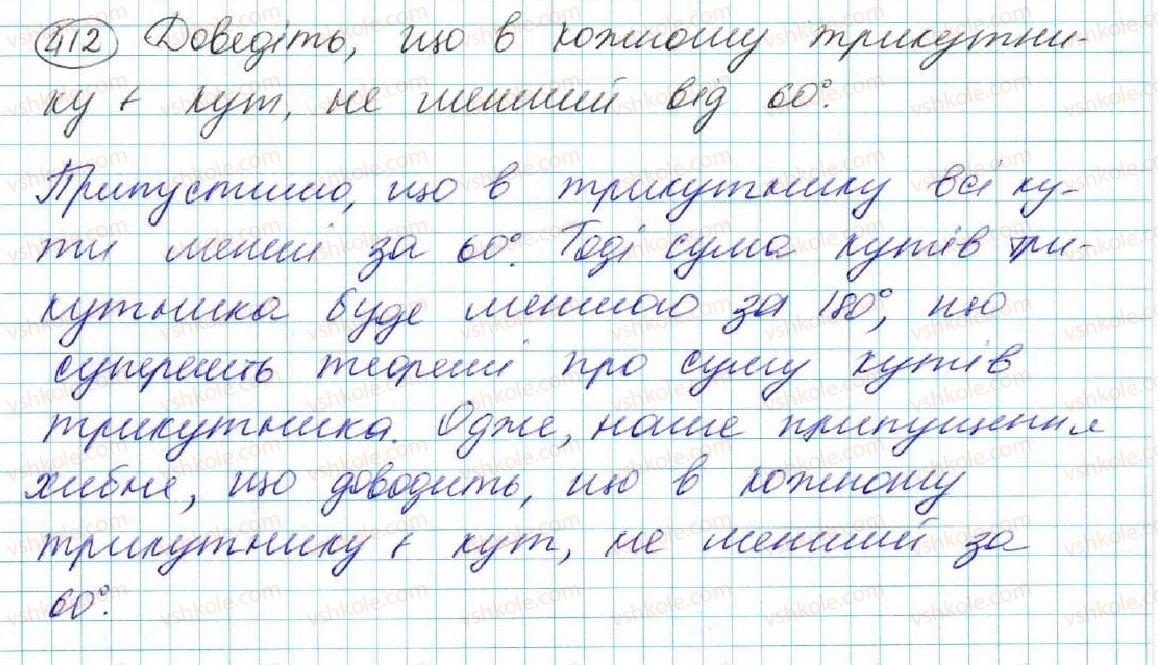 412 Доведіть, що в кожному трикутни-
ку є кут, не менший від 60°.
Припустимо, що в трикутнику всі ку-
ти менші за 60°. Тоді сума кутів три-
кутника буде меншою за 180°, що
суперечить теоремі про суму кутів
трикутника. Отже, наше припущення
хибне, що доводить, що в кожному
трикутнику є кут, не менший за
60°.
vshkole.com